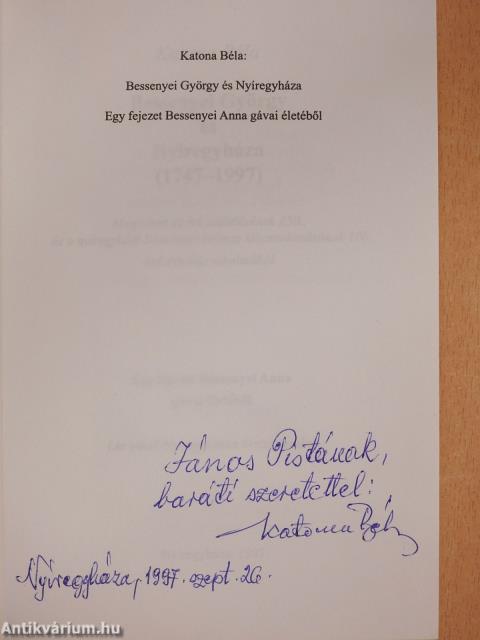 Katona Béla:
Bessenyei György és Nyíregyháza
Egy fejezet Bessenyei Anna gávai életéből
Bessenyei György
és
Nyíregyháza
(1747-1997)
János Pistának,
baráti szeretettel:
Katona Béla
Nyíregyháza, 1997. szept. 26.
Antikvárium.hu